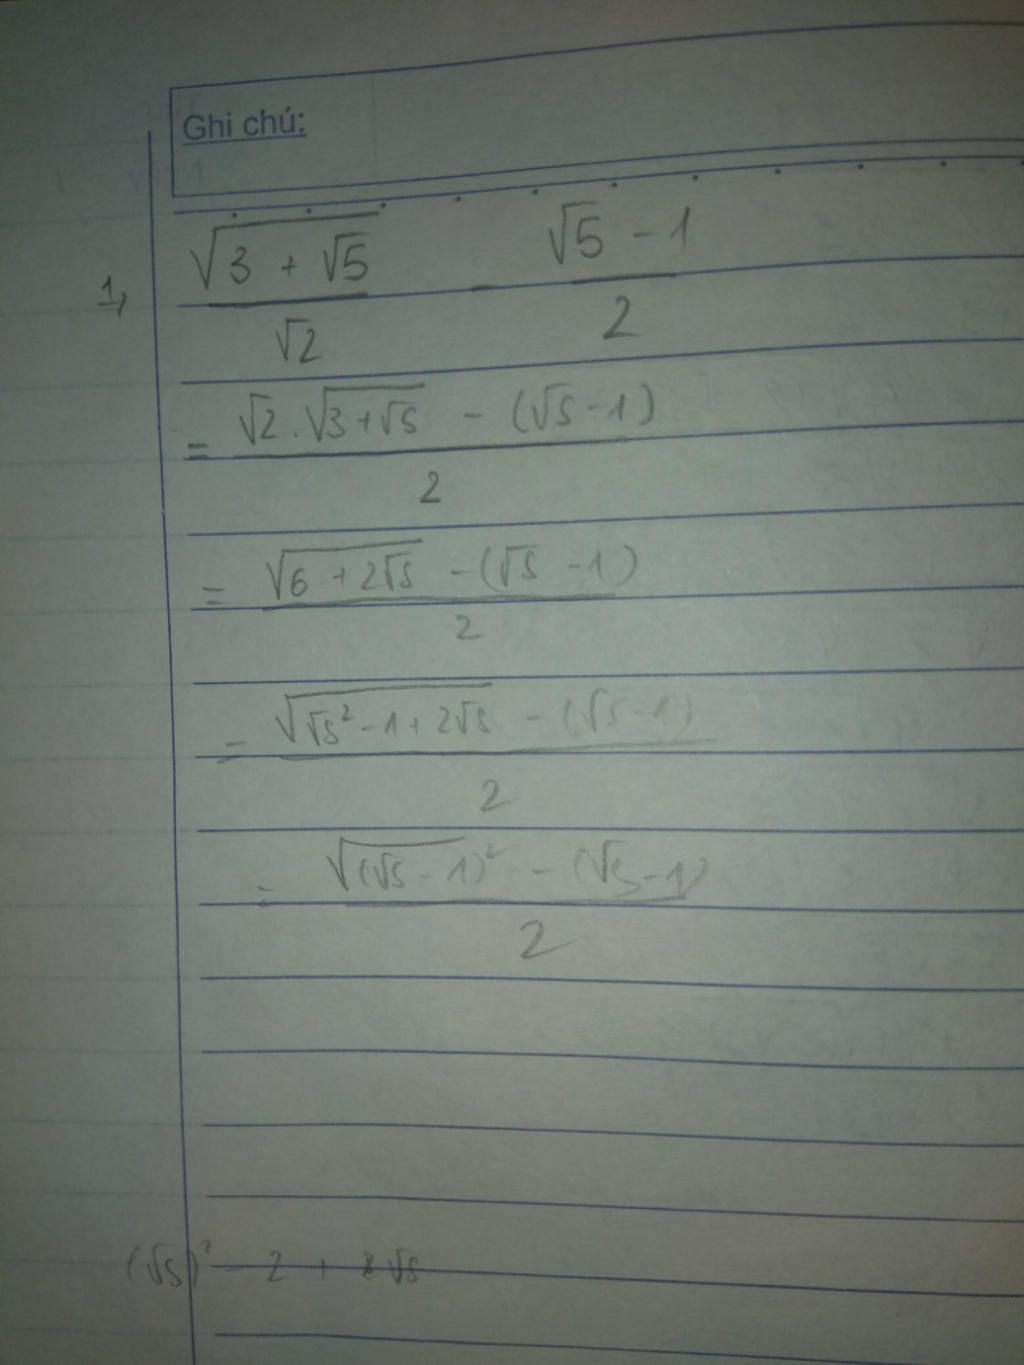 Ghi chú:
1, √(3 + √5) / √2 - (√5 - 1) / 2
= (√2 . √(3+√5) - (√5-1)) / 2
= (√(6 + 2√5) - (√5 - 1)) / 2
= (√(√5² - 1 + 2√5) - (√5-1)) / 2
= (√((√5 - 1)²) - (√5-1)) / 2
(√5)² - 2 + 2√5